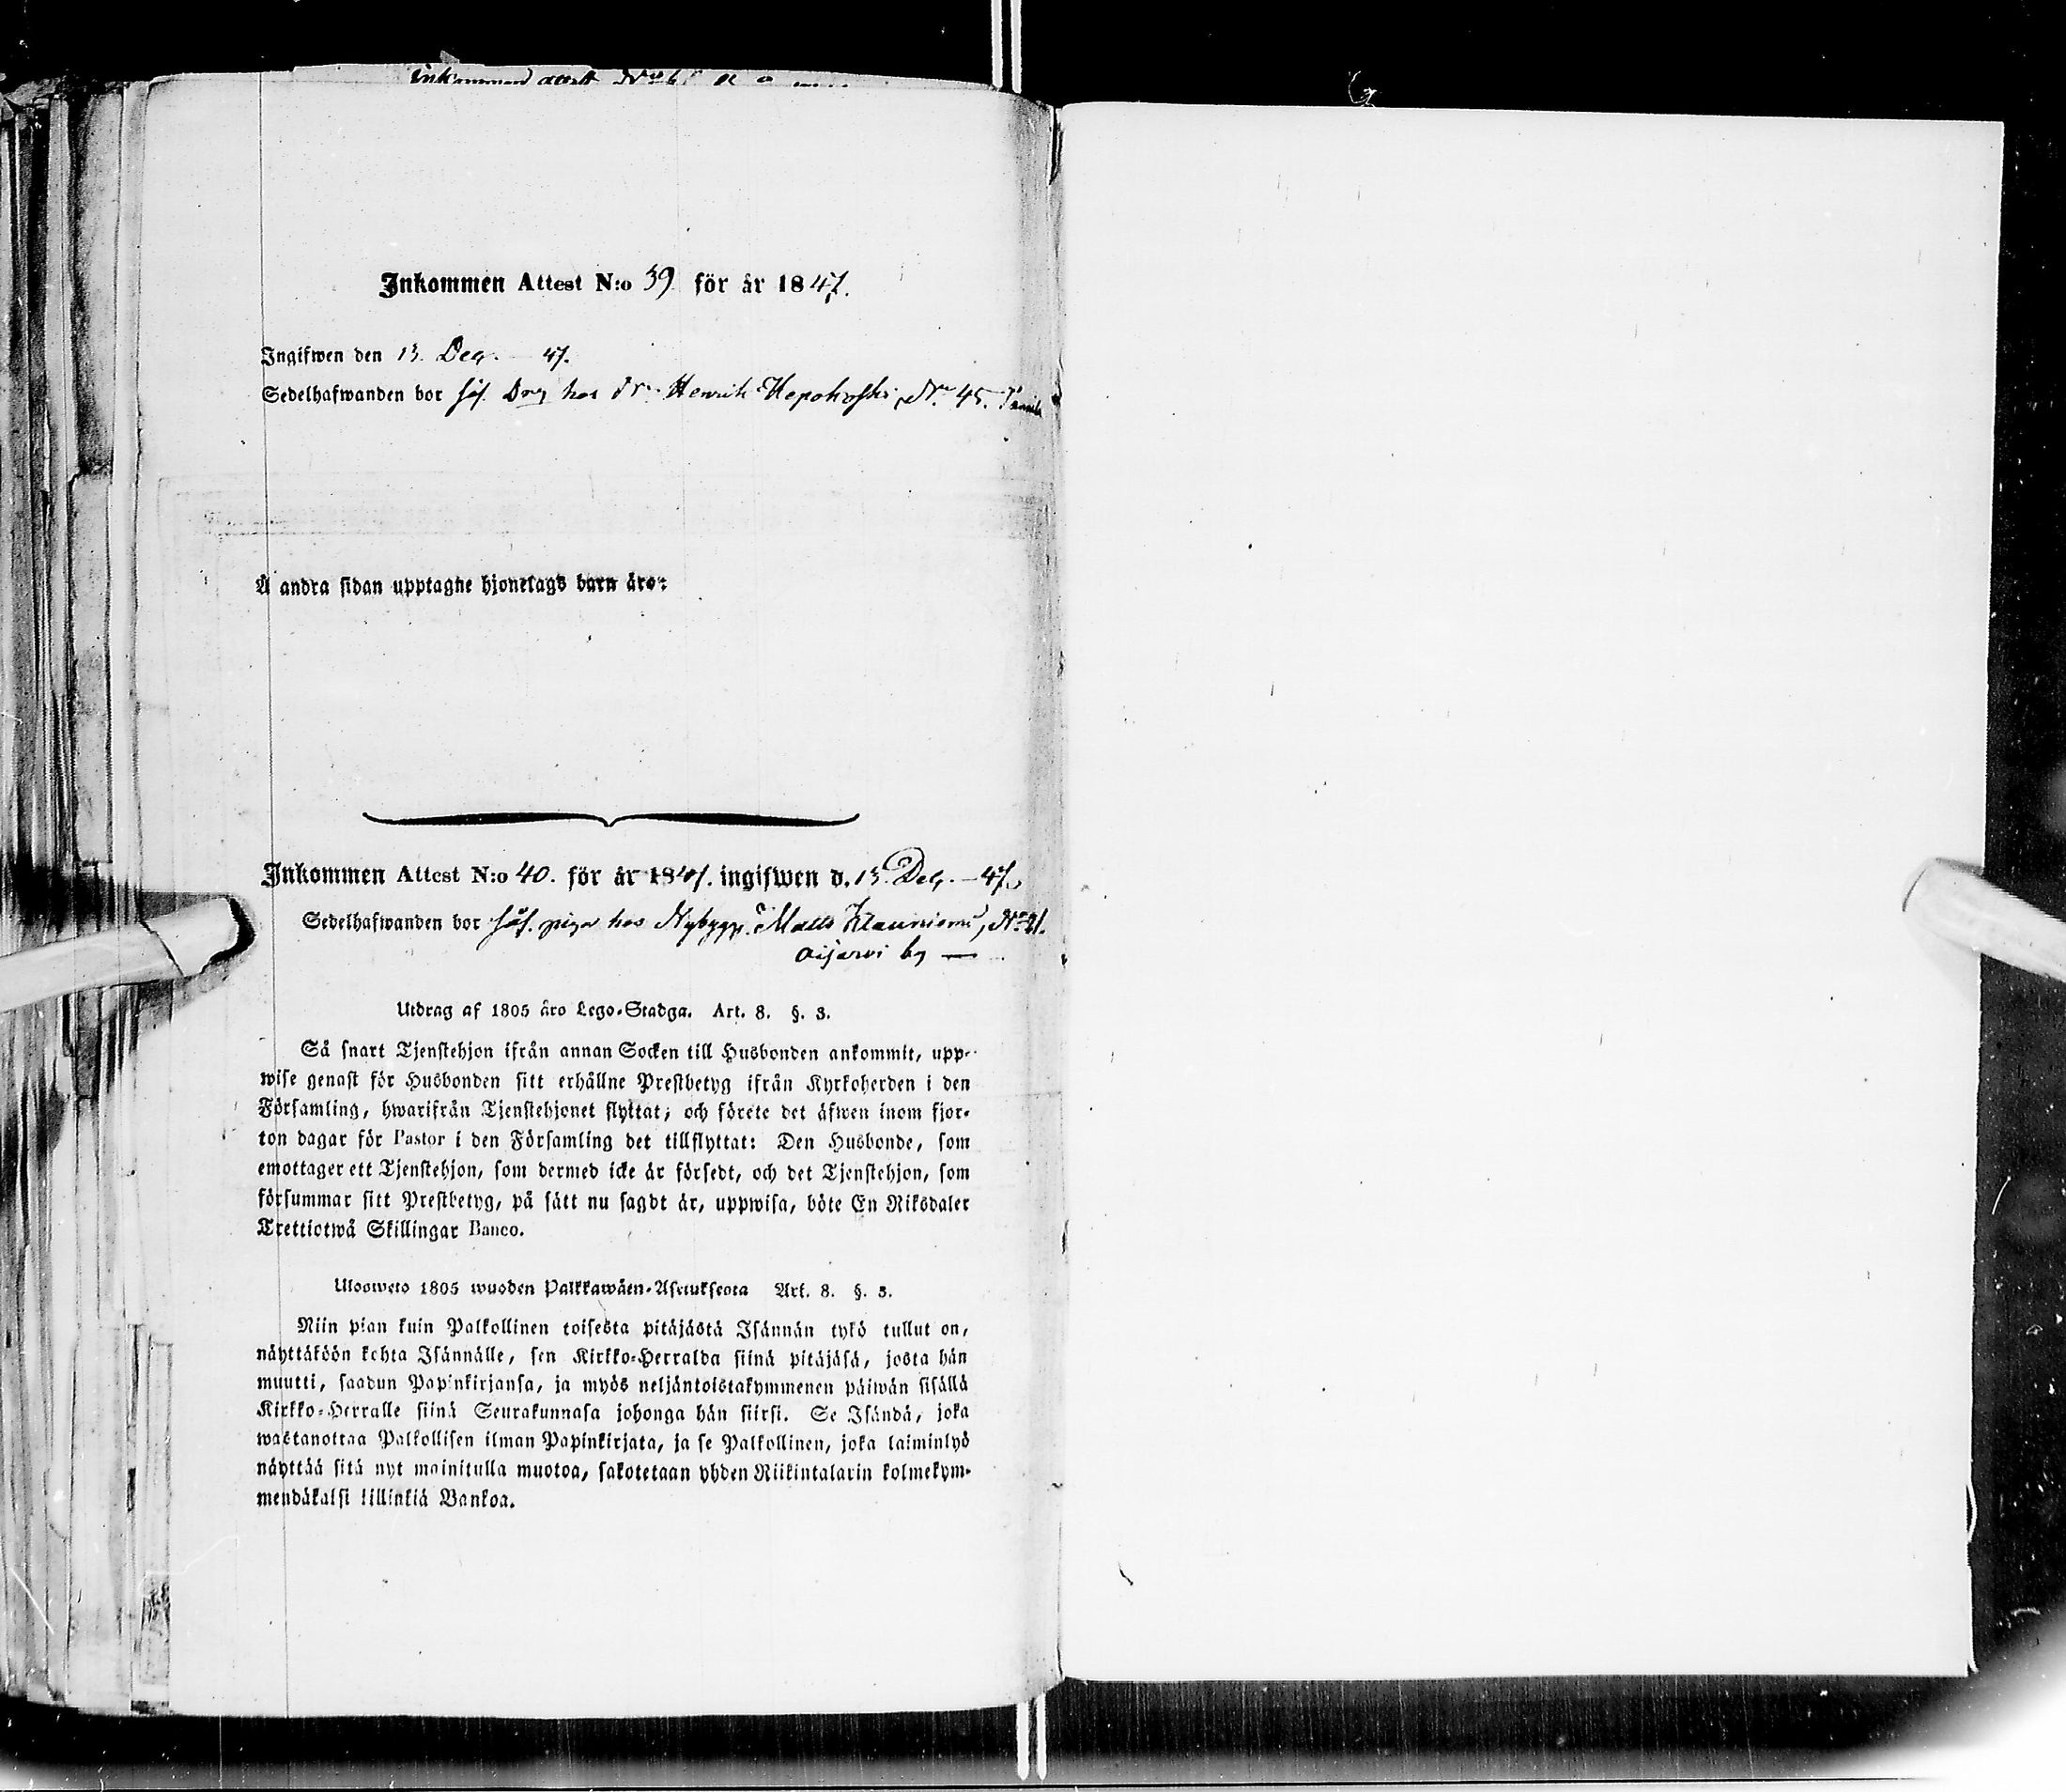 Inkommen attest No
Inkommen Attest N:o 39 för år 1847.
Ingifwen den 13. Dec. 47.
Sedelhafwanden bor såf. Drg hos Henrik Hepokoski, No 45.
Å andra sidan upptagne hjonelags barn äro:
Inkommen Attest N:o 40. för år 1847. ingifwen d. 13. Dec. – 47.
Sedelhafwanden bor såf. piga hos Nybygg. Matts Klauniemi, No 21.
Aijärwi by —
Utdrag af 1805 års Lego-Stadga. Art. 8. §. 3.
Så snart Tjenstehjon ifrån annan Socken till Husbonden ankommit, upp-
wise genast för Husbonden sitt erhållne Prestbetyg ifrån Kyrkoherden i den
Församling, hwarifrån Tjenstehjonet flyttat; och förete det äfwen inom fjor-
ton dagar för Pastor i den Församling det tillflyttat: Den Husbonde, som
emottager ett Tjenstehjon, som dermed icke är försedt, och det Tjenstehjon, som
försummar sitt Prestbetyg, på sätt nu sagdt är, uppwisa, böte En Riksdaler
Trettiotwå Skillingar Banco.
Ulosweto 1805 wuoden Palkkawäen-Asetuksesta Art. 8. §. 3.
Niin pian kuin Palkollinen toisesta pitäjästä Isännän tykö tullut on,
näyttäköön kohta Isännälle, sen Kirkko-Herralda siinä pitäjäsä, josta hän
muutti, saadun Papinkirjansa, ja myös neljäntoistakymmenen päiwän sisällä
Kirkko-Herralle siinä Seurakunnasa johonga hän siirsi. Se Isändä, joka
wastanottaa Palkollisen ilman Papinkirjata, ja se Palkollinen, joka laiminlyö
näyttää sitä nyt mainitulla muotoa, sakotetaan yhden Riikintalarin kolmekym-
mendäkaksi killinkiä Bankoa.